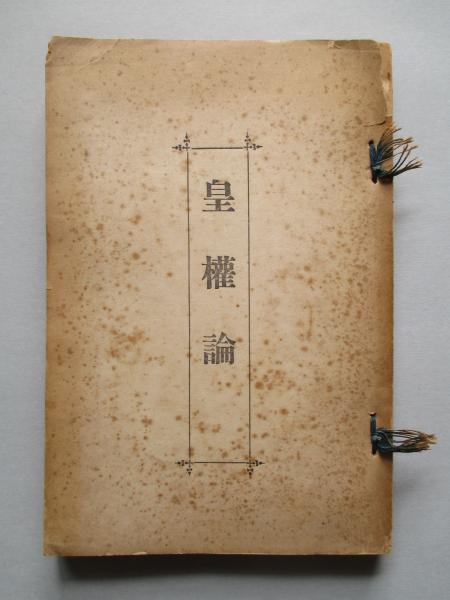 皇權論